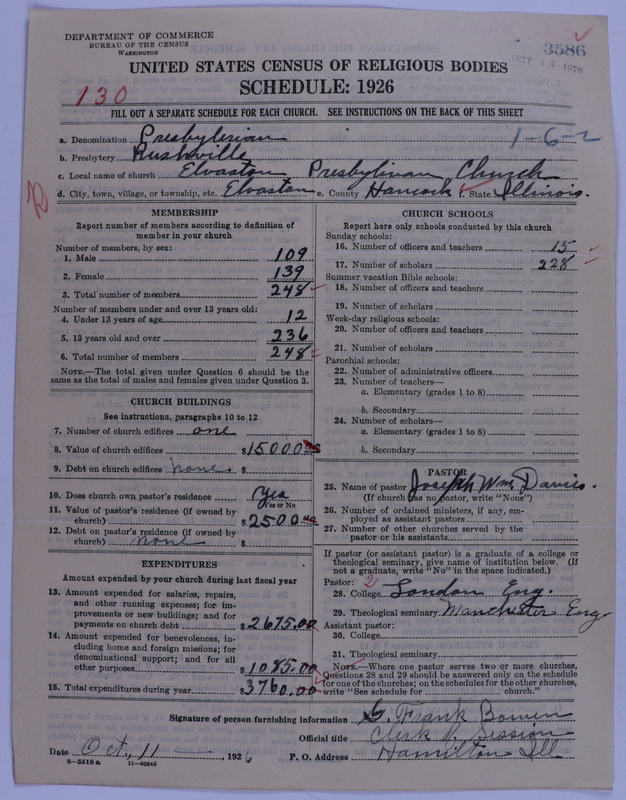 DEPARTMENT OF COMMERCE
BUREAU OF THE CENSUS
WASHINGTON
3586
OCT 14 1926
UNITED STATES CENSUS OF RELIGIOUS BODIES
SCHEDULE: 1926
130
FILL OUT A SEPARATE SCHEDULE FOR EACH CHURCH. SEE INSTRUCTIONS ON THE BACK OF THIS SHEET
a. Denomination Presbyterian
1-6-2
b. Presbytery Rushville
c. Local name of church Elvaston Presbyterian Church
d. City, town, village, or township, etc. Elvaston e. County Hancock f. State Illinois.
MEMBERSHIP
Report number of members according to definition of
member in your church
Number of members, by sex:
1. Male 109
2. Female 139
3. Total number of members 248
Number of members under and over 13 years old:
4. Under 13 years of age 12
5. 13 years old and over 236
6. Total number of members 248
NOTE.—The total given under Question 6 should be the
same as the total of males and females given under Question 3.
CHURCH BUILDINGS
See instructions, paragraphs 10 to 12
7. Number of church edifices one
8. Value of church edifices $15000.00
9. Debt on church edifices none $
10. Does church own pastor's residence Yes
Yes or No
11. Value of pastor's residence (if owned by
church) $2500.00
12. Debt on pastor's residence (if owned by
church) none $
EXPENDITURES
Amount expended by your church during last fiscal year
13. Amount expended for salaries, repairs,
and other running expenses; for im-
provements or new buildings; and for
payments on church debt $2675.00
14. Amount expended for benevolences, in-
cluding home and foreign missions; for
denominational support; and for all
other purposes $1085.00
15. Total expenditures during year $3760.00
CHURCH SCHOOLS
Report here only schools conducted by this church
Sunday schools:
16. Number of officers and teachers 15
17. Number of scholars 228
Summer vacation Bible schools:
18. Number of officers and teachers
19. Number of scholars
Week-day religious schools:
20. Number of officers and teachers
21. Number of scholars
Parochial schools:
22. Number of administrative officers
23. Number of teachers—
a. Elementary (grades 1 to 8)
b. Secondary
24. Number of scholars—
a. Elementary (grades 1 to 8)
b. Secondary
PASTOR
25. Name of pastor Joseph Wm. Davies.
(If church has no pastor, write "None")
26. Number of ordained ministers, if any, em-
ployed as assistant pastors
27. Number of other churches served by the
pastor or his assistants
If pastor (or assistant pastor) is a graduate of a college or
theological seminary, give name of institution below. (If
not a graduate, write "No" in the space indicated.)
Pastor: 2
28. College London Eng.
29. Theological seminary Manchester Eng
Assistant pastor:
30. College
31. Theological seminary
NOTE.—Where one pastor serves two or more churches,
Questions 28 and 29 should be answered only on the schedule
for one of the churches; on the schedules for the other churches,
write "See schedule for church."
Signature of person furnishing information G. Frank Bowen
Official title Clerk of Session
Date Oct, 11 1926 P. O. Address Hamilton Ill
8-5518a